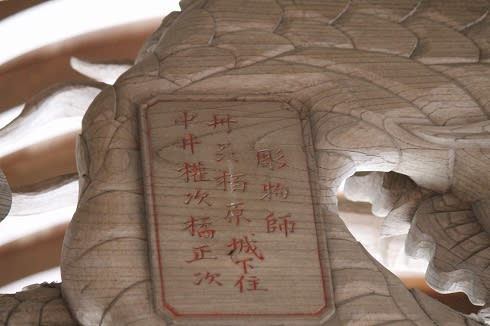 彫物師
丹栢原城下住
中井權次橘正次